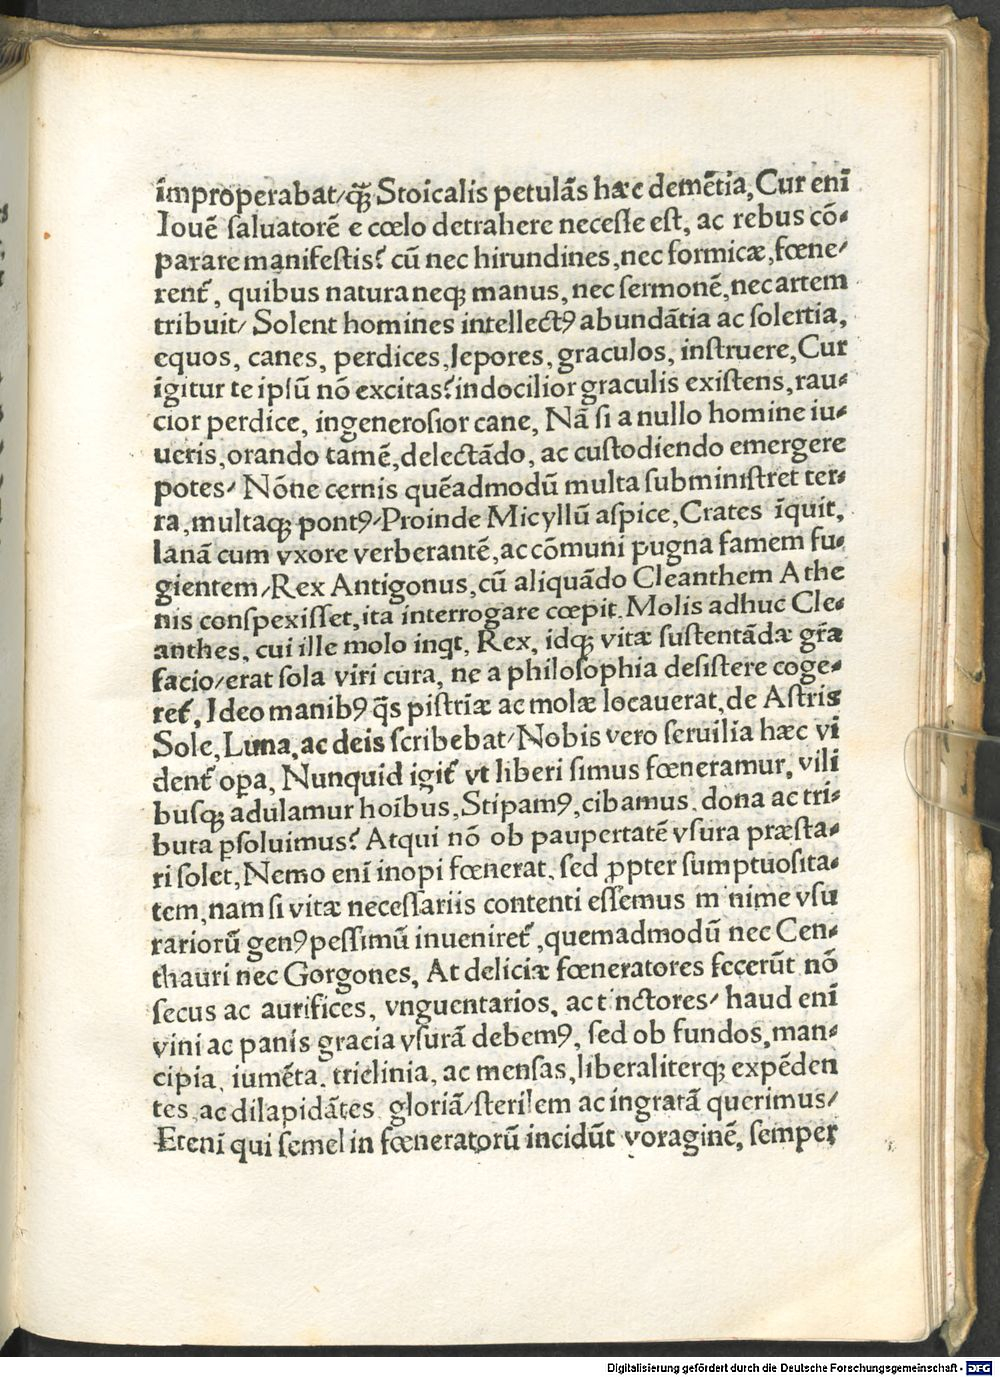 ĩmproperabat/qꝫ̃ Stoicalis petulãs hæc demẽtia, Cur enĩ
Iouẽ ſaluatorẽ e cœlo detrahere neceſſe eſt, ac rebus cõ-
parare manifeſtis? cũ nec hirundines, nec formicæ, fœne/
renť, quibus natura neqꝫ manus, nec ſermonẽ, nec artem
tribuit/ Solent homines intellectꝰ abundãtia ac ſolertia,
equos, canes, perdices, lepores, graculos, inſtruere, Cur
igitur te ipſũ nõ excitas? indocilior graculis exiſtens, rau-
cior perdice, ingeneroſior cane, Nã ſi a nullo homine iu-
ueris, orando tamẽ, delectãdo, ac cuſtodiendo emergere
potes/ Nõne cernis quẽadmodũ multa ſubminiſtret ter-
ra, multaqꝫ pontꝰ/ Proinde Micyllũ aſpice, Crates ĩquit,
lanã cum vxore verberantẽ, ac cõmuni pugna famem fu-
gientem/ Rex Antigonus, cũ aliquãdo Cleanthem Athe
nis conſpexiſſet, ita interrogare cœpit. Molis adhuc Cle-
anthes, cui ille molo inqt, Rex, idqꝫ vitæ ſuſtentãdæ gr̃a
facio/ erat ſola viri cura, ne a philoſophia deſiſtere coge-
reť, Ideo manibꝰ q̃s piſtriæ ac molæ locauerat, de Aſtris
Sole, Luna, ac deis ſcribebat/ Nobis vero ſeruilia hæc vi
denť oꝑa, Nunquid igiť vt liberi ſimus fœneramur, vili
buſqꝫ adulamur hoĩbus, Stipamꝰ, cibamus. dona ac tri-
buta ꝑſoluimus? Atqui nõ ob paupertatẽ vſura præſta-
ri ſolet, Nemo enĩ inopi fœnerat, ſed ꝓpter ſumptuoſita-
tem, nam ſi vitæ neceſſariis contenti eſſemus m nime vſu
rariorũ genꝰ peſſimũ inuenireť, quemadmodũ nec Cen-
thauri nec Gorgones, At deliciæ fœneratores fecerũt nõ
ſecus ac aurifices, vnguentarios, ac t nctores/ haud enĩ
vini ac panis gracia vſurã debemꝰ, ſed ob fundos, man-
cipia, iumẽta, triclinia, ac menſas, liberaliterqꝫ expẽden
tes, ac dilapidãtes gloriã/ ſterilem ac ingratã querimus/
Etenĩ qui ſemel in fœneratorũ incidũt voraginẽ, ſemper
Digitalisierung gefördert durch die Deutsche Forschungsgemeinschaft - DFG